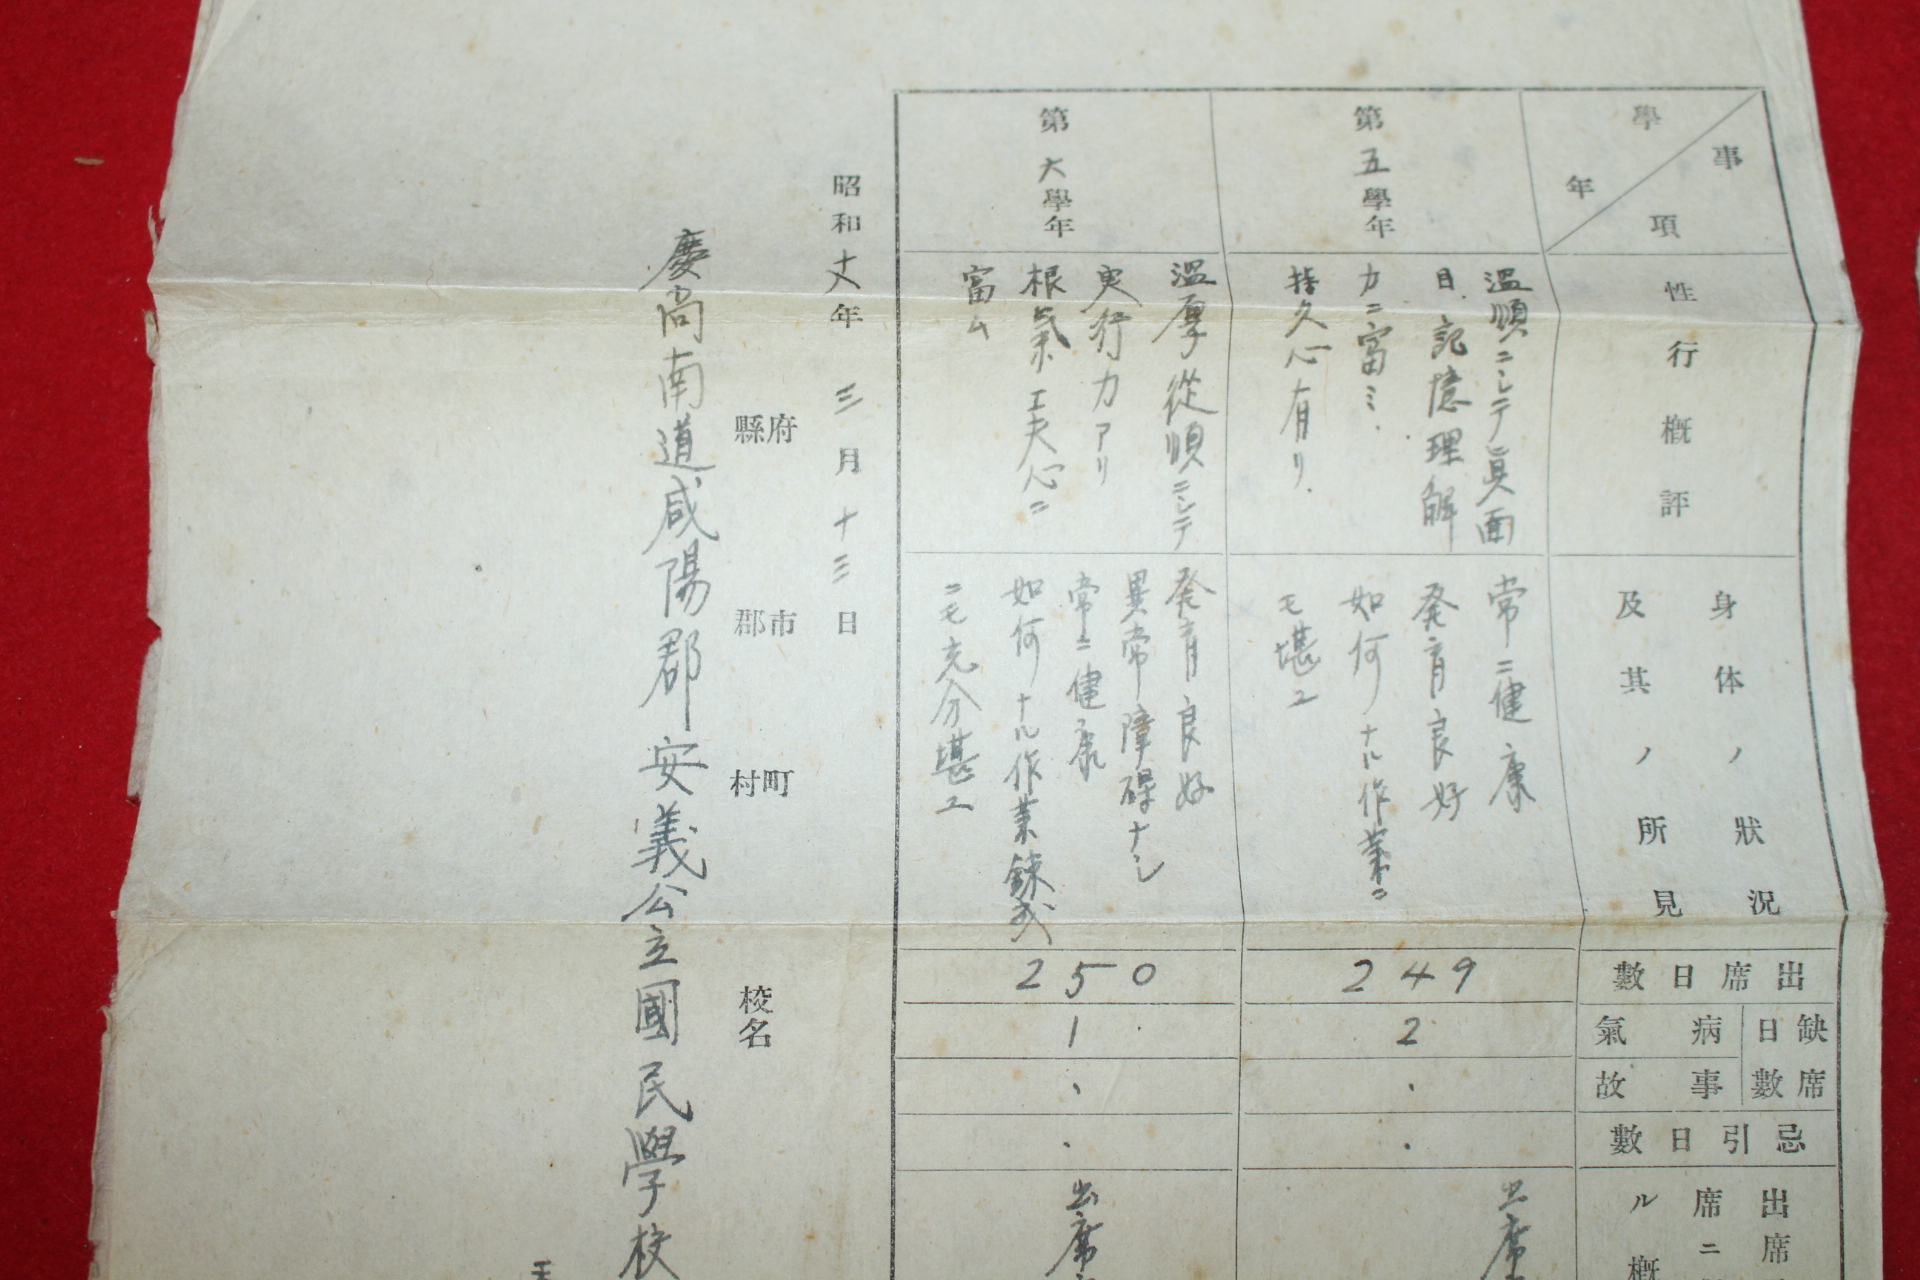 事項
學年
性行概評
身体ノ狀況
及其ノ所見
出席日數
缺席日數
病氣
事故
忌引日數
出席
席ニ
ル概
第五學年
溫順ニシテ眞面
目、記憶理解
力ニ富ミ、
持久心有リ、
常ニ健康
発育良好
如何ナル作業ニ
モ堪エ
249
2
出席
第六學年
溫厚從順ニシテ
実行力アリ
根氣工夫心ニ
富ム
発育良好
異常障碍ナシ
常ニ健康
如何ナル作業錬成
ニモ充分堪エ
250
1
出席
昭和十八年三月十三日
府縣
市郡
町村
校名
慶尚南道咸陽郡安義公立國民學校